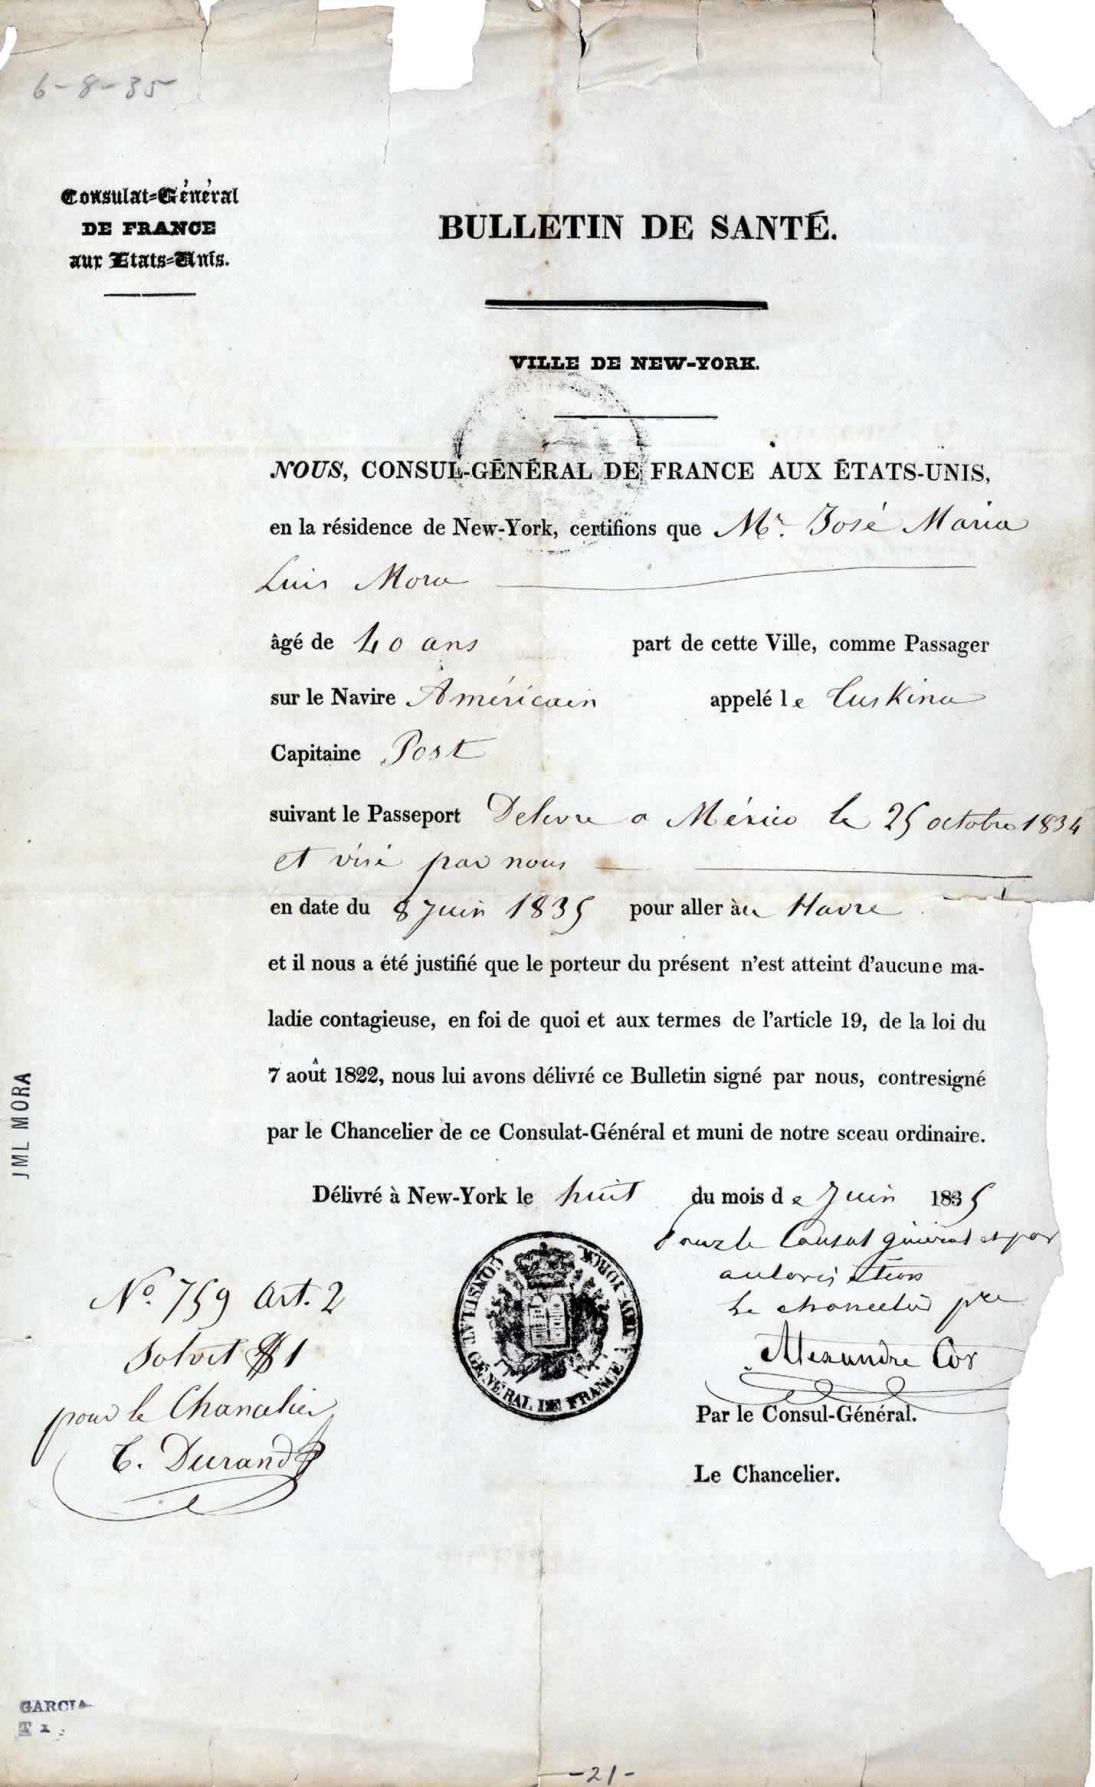 6-8-35
Consulat-Général
DE FRANCE
aux Etats-Unis.
BULLETIN DE SANTÉ.
VILLE DE NEW-YORK.
NOUS, CONSUL-GÉNÉRAL DE FRANCE AUX ÉTATS-UNIS,
en la résidence de New-York, certifions que Mr. José Maria
Luis Mora
âgé de 40 ans part de cette Ville, comme Passager
sur le Navire Américain appelé le Tuskina
Capitaine Post
suivant le Passeport Delivre a México le 25 octobre 1834
et visé par nous
en date du 8 Juin 1835 pour aller au Havre
et il nous a été justifié que le porteur du présent n'est atteint d'aucune ma-
ladie contagieuse, en foi de quoi et aux termes de l'article 19, de la loi du
7 août 1822, nous lui avons délivré ce Bulletin signé par nous, contresigné
par le Chancelier de ce Consulat-Général et muni de notre sceau ordinaire.
Délivré à New-York le huit du mois de Juin 1835
Pour le Consul général et par
autorisation
Le chancelier
Alexandre Cor
CONSULAT GÉNÉRAL DE FRANCE À NEW-YORCK
No. 759 Art. 2
Solvit $1
pour le Chancelier
T. Durand
Par le Consul-Général.
Le Chancelier.
JML MORA
GARCIA
-21-